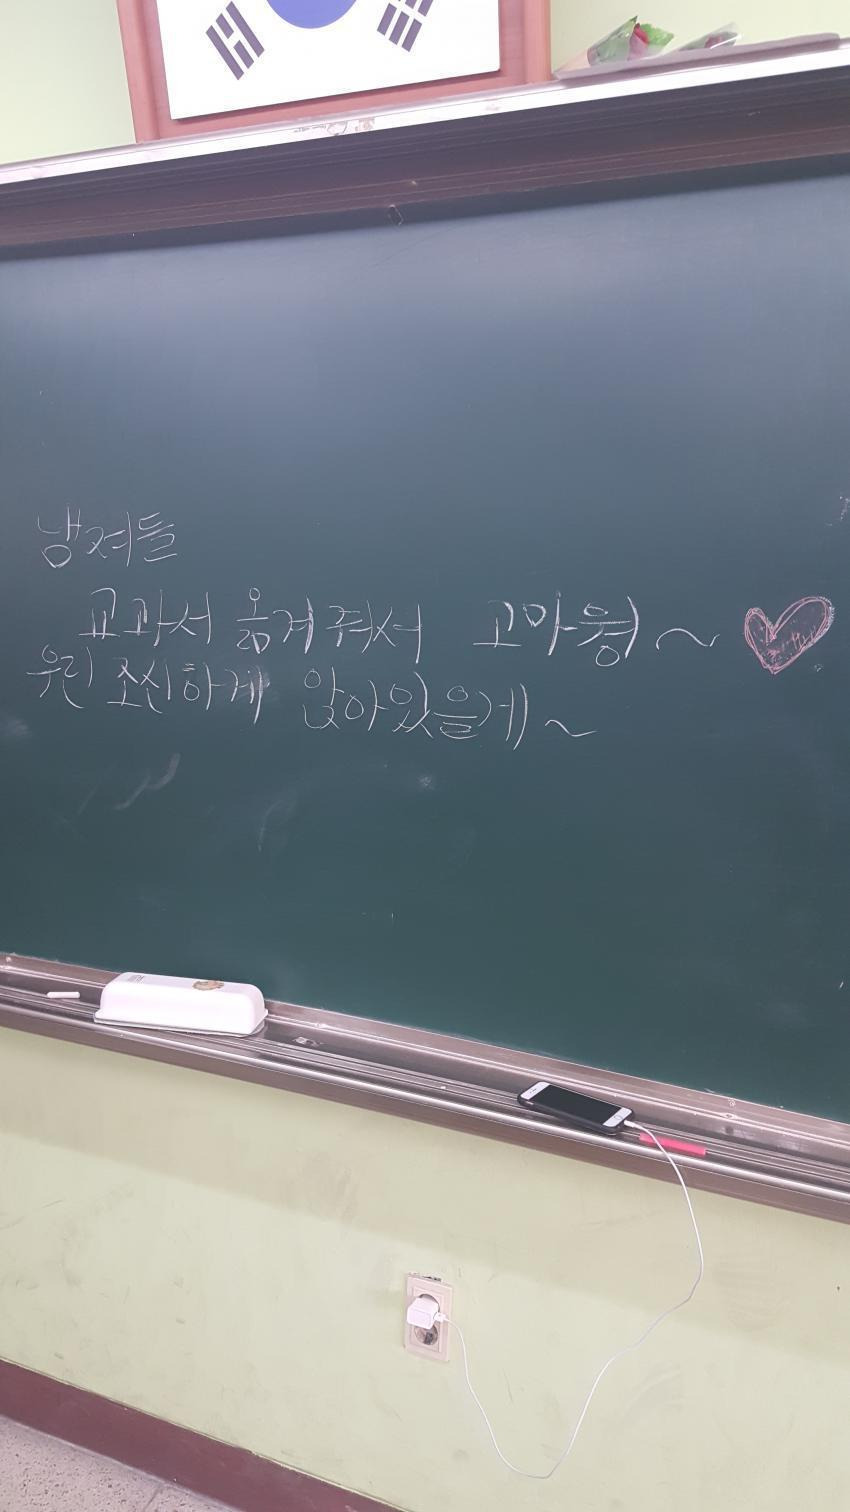 냄져들
교과서 옮겨줘서 고마웡~
우린 조신하게 앉아있을게~